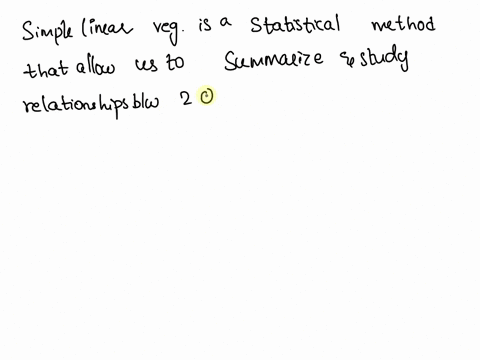 Simple linear reg. is a statistical method
that allow us to Summarize & study
relationships b/w 2 C